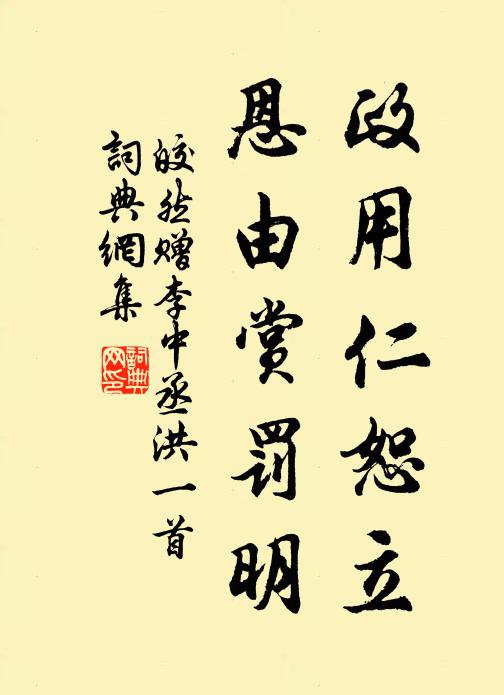 政用仁恕立
恩由赏罚明
皎然赠李中丞洪一首
詞典網集
詞典网印